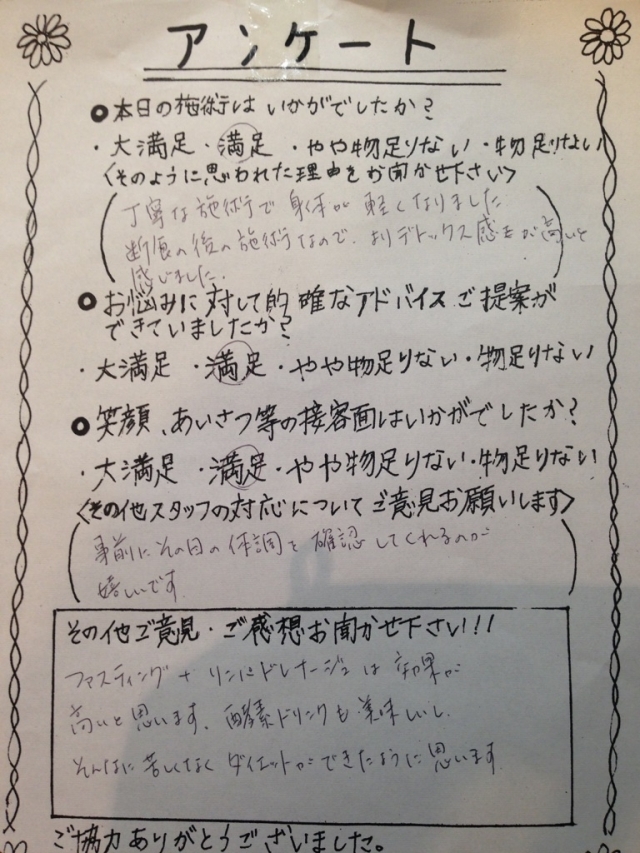 アンケート
本日の施術はいかがでしたか?
・大満足・満足・やや物足りない・物足りない
<そのように思われた理由をお聞かせ下さい>
丁寧な施術で身体が軽くなりました
断食の後の施術なので、よりデトックス感が高いと
感じました.
お悩みに対して的確なアドバイスご提案が
できていましたか?
・大満足・満足・やや物足りない・物足りない
笑顔、あいさつ等の接客面はいかがでしたか?
・大満足・満足・やや物足りない・物足りない
<その他スタッフの対応についてご意見お願いします>
事前にその日の体調を確認してくれるのが
嬉しいです.
その他ご意見・ご感想お聞かせ下さい!!!
ファスティング+リンパドレナージュは効果が
高いと思います、酵素ドリンクも美味しいし、
そんなに苦しくなくダイエットができたように思います.
ご協力ありがとうございました。